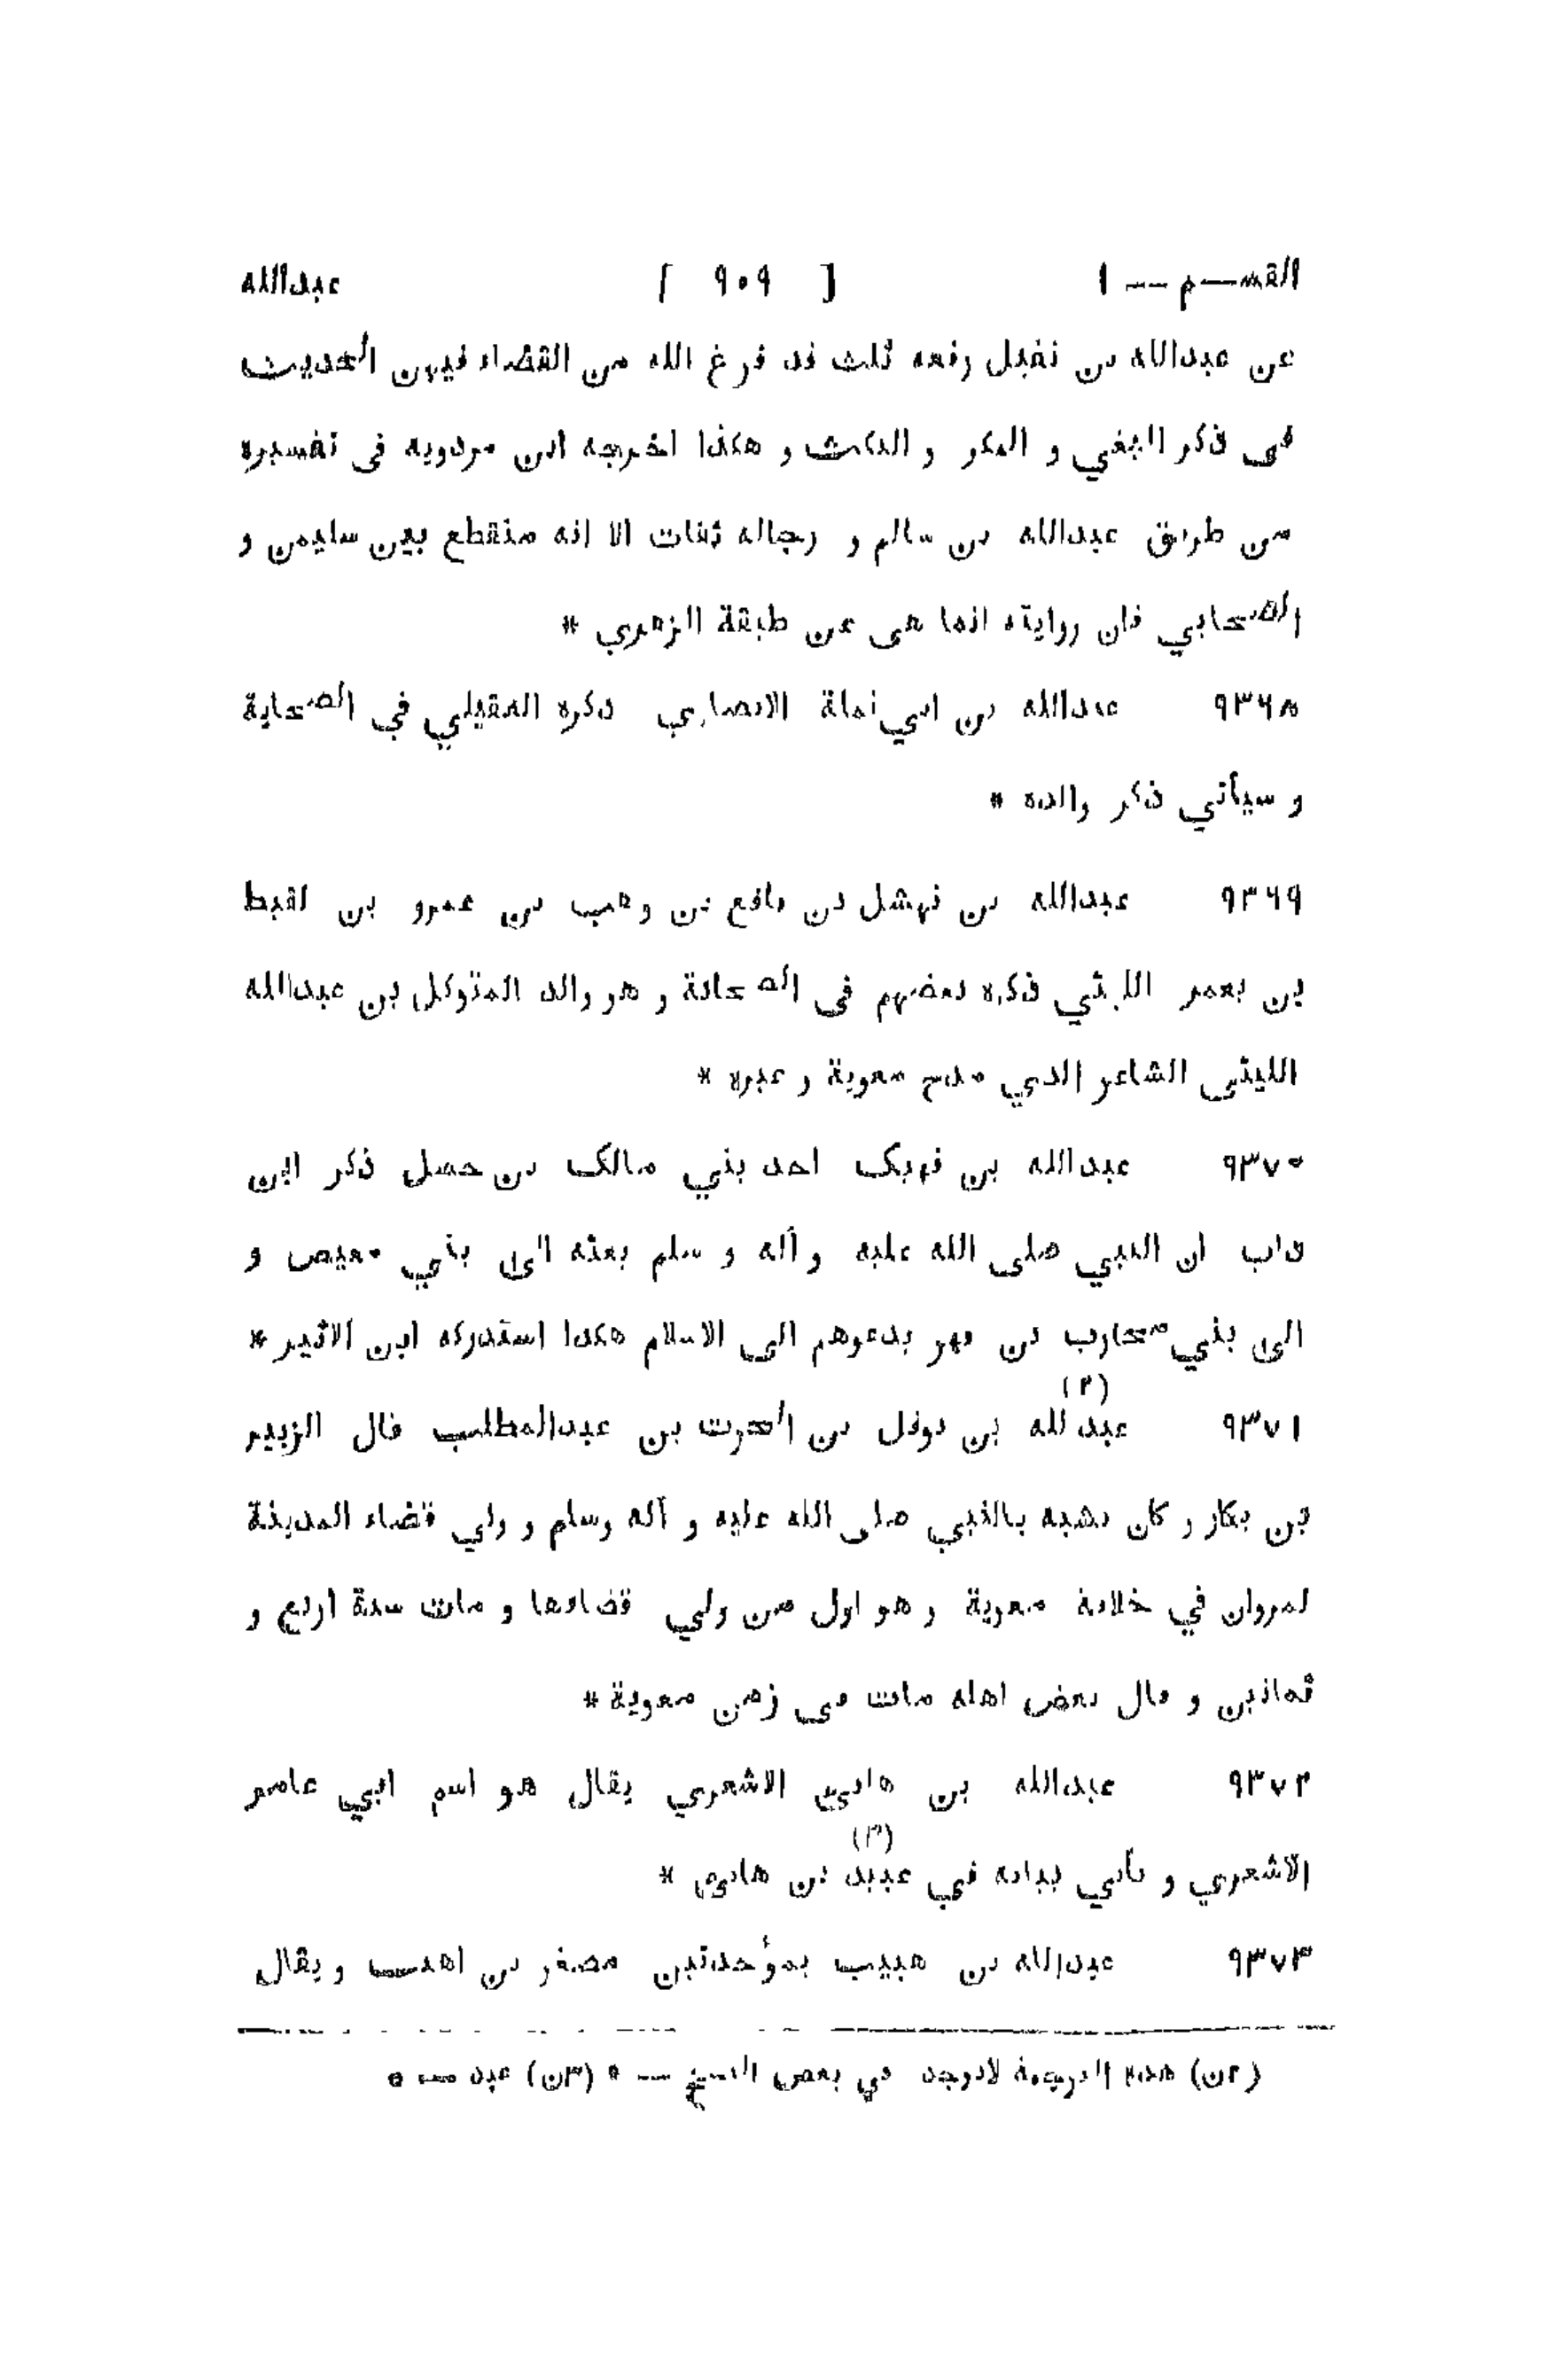 القسم -- ١ [ ٩٠٩ ] عبدالله
عن عبدالله بن نفيل رفعه ثلث قد فرغ الله من القضاء فيهن الحديث
فى ذكر البغي و المكر و النكث و هكذا اخرجه ابن مردويه فى تفسيره
من طريق عبدالله بن سالم و رجاله ثقات الا انه منقطع بين سليمن و
الصحابي فان روايته انما هى عن طبقة الزهري *
٩٣٦٨ عبدالله بن ابي نملة الانصاري ذكره العقيلي في الصحابة
و سيأتي ذكر والده *
٩٣٦٩ عبدالله بن نهشل بن نافع بن وهب بن عمرو بن لقيط
بن يعمر الليثي ذكره بعضهم فى الصحابة و هو والد المتوكل بن عبدالله
الليثى الشاعر الذي مدح معوية و غيره *
٩٣٧٠ عبدالله بن نهيك احد بني مالك بن حسل ذكر ابن
داب ان النبي صلى الله عليه و آله و سلم بعثه الى بني معيص و
الى بني محارب بن فهر يدعوهم الى الاسلام هكذا استدركه ابن الاثير *
٩٣٧١ عبدالله (٢) بن نوفل بن الحرث بن عبدالمطلب قال الزبير
بن بكار و كان يشبه بالنبي صلى الله عليه و آله وسلم و ولي قضاء المدينة
لمروان في خلافة معوية و هو اول من ولي قضاءها و مات سنة اربع و
ثمانين و قال بعض اهله مات فى زمن معوية *
٩٣٧٢ عبدالله بن هانئ الاشعري يقال هو اسم ابي عامر
الاشعري و يأتي بيانه في عبيد (٣) بن هانئ *
٩٣٧٣ عبدالله بن هبيب بموحدتين مصغر بن اهيب و يقال
(٢ن) هذه الترجمة لاتوجد في بعض النسخ -- * (٣ن) عبد -- *